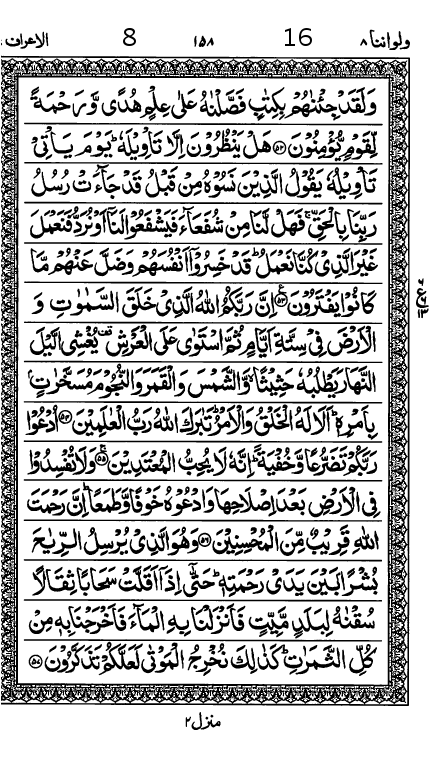 ولواننا ۸ 16 ۱۵۸ 8 الاعراف ۷
وَلَقَدْ جِئْنٰهُمْ بِكِتٰبٍ فَصَّلْنٰهُ عَلٰى عِلْمٍ هُدًى وَّ رَحْمَةً
لِّقَوْمٍ يُّؤْمِنُوْنَ ۵۲ هَلْ يَنْظُرُوْنَ اِلَّا تَاْوِيْلَهٗ ؕ يَوْمَ يَاْتِىْ
تَاْوِيْلُهٗ يَقُوْلُ الَّذِيْنَ نَسُوْهُ مِنْ قَبْلُ قَدْ جَآءَتْ رُسُلُ
رَبِّنَا بِالْحَقِّ ۚ فَهَلْ لَّنَا مِنْ شُفَعَآءَ فَيَشْفَعُوْا لَنَاۤ اَوْ نُرَدُّ فَنَعْمَلَ
غَيْرَ الَّذِىْ كُنَّا نَعْمَلُ ؕ قَدْ خَسِرُوْۤا اَنْفُسَهُمْ وَضَلَّ عَنْهُمْ مَّا
كَانُوْا يَفْتَرُوْنَ ۵۳ اِنَّ رَبَّكُمُ اللهُ الَّذِىْ خَلَقَ السَّمٰوٰتِ وَ
الْاَرْضَ فِىْ سِتَّةِ اَيَّامٍ ثُمَّ اسْتَوٰى عَلَى الْعَرْشِ يُغْشِى الَّيْلَ
النَّهَارَ يَطْلُبُهٗ حَثِيْثًا ۙ وَّالشَّمْسَ وَالْقَمَرَ وَالنُّجُوْمَ مُسَخَّرٰتٍۭ
بِاَمْرِهٖ ؕ اَلَا لَهُ الْخَلْقُ وَالْاَمْرُ ؕ تَبٰرَكَ اللهُ رَبُّ الْعٰلَمِيْنَ ۵۴ اُدْعُوْا
رَبَّكُمْ تَضَرُّعًا وَّخُفْيَةً ؕ اِنَّهٗ لَا يُحِبُّ الْمُعْتَدِيْنَ ۵۵ وَلَا تُفْسِدُوْا
فِى الْاَرْضِ بَعْدَ اِصْلَاحِهَا وَادْعُوْهُ خَوْفًا وَّطَمَعًا ؕ اِنَّ رَحْمَتَ
اللهِ قَرِيْبٌ مِّنَ الْمُحْسِنِيْنَ ۵۶ وَهُوَ الَّذِىْ يُرْسِلُ الرِّيٰحَ
بُشْرًاۢ بَيْنَ يَدَىْ رَحْمَتِهٖ ؕ حَتّٰۤى اِذَاۤ اَقَلَّتْ سَحَابًا ثِقَالًا
سُقْنٰهُ لِبَلَدٍ مَّيِّتٍ فَاَنْزَلْنَا بِهِ الْمَآءَ فَاَخْرَجْنَا بِهٖ مِنْ
كُلِّ الثَّمَرٰتِ ؕ كَذٰلِكَ نُخْرِجُ الْمَوْتٰى لَعَلَّكُمْ تَذَكَّرُوْنَ ۵۷
منزل ۲